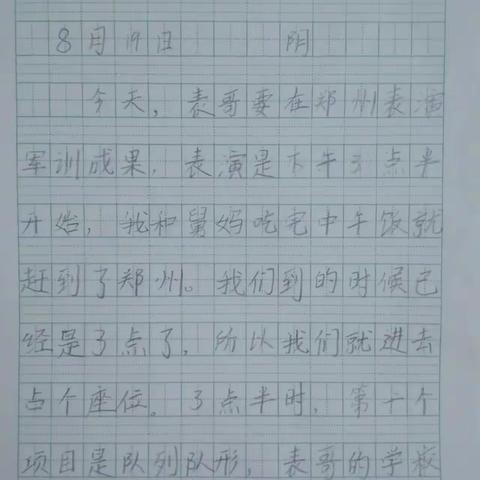 8月19日 阴
今天，表哥要在郑州表演
军训成果，表演是下午3点半
开始，我和舅妈吃完中午饭就
赶到了郑州。我们到的时候已
经是3点了，所以我们就进去
占个座位。3点半时，第一个
项目是队列队形，表哥的学校